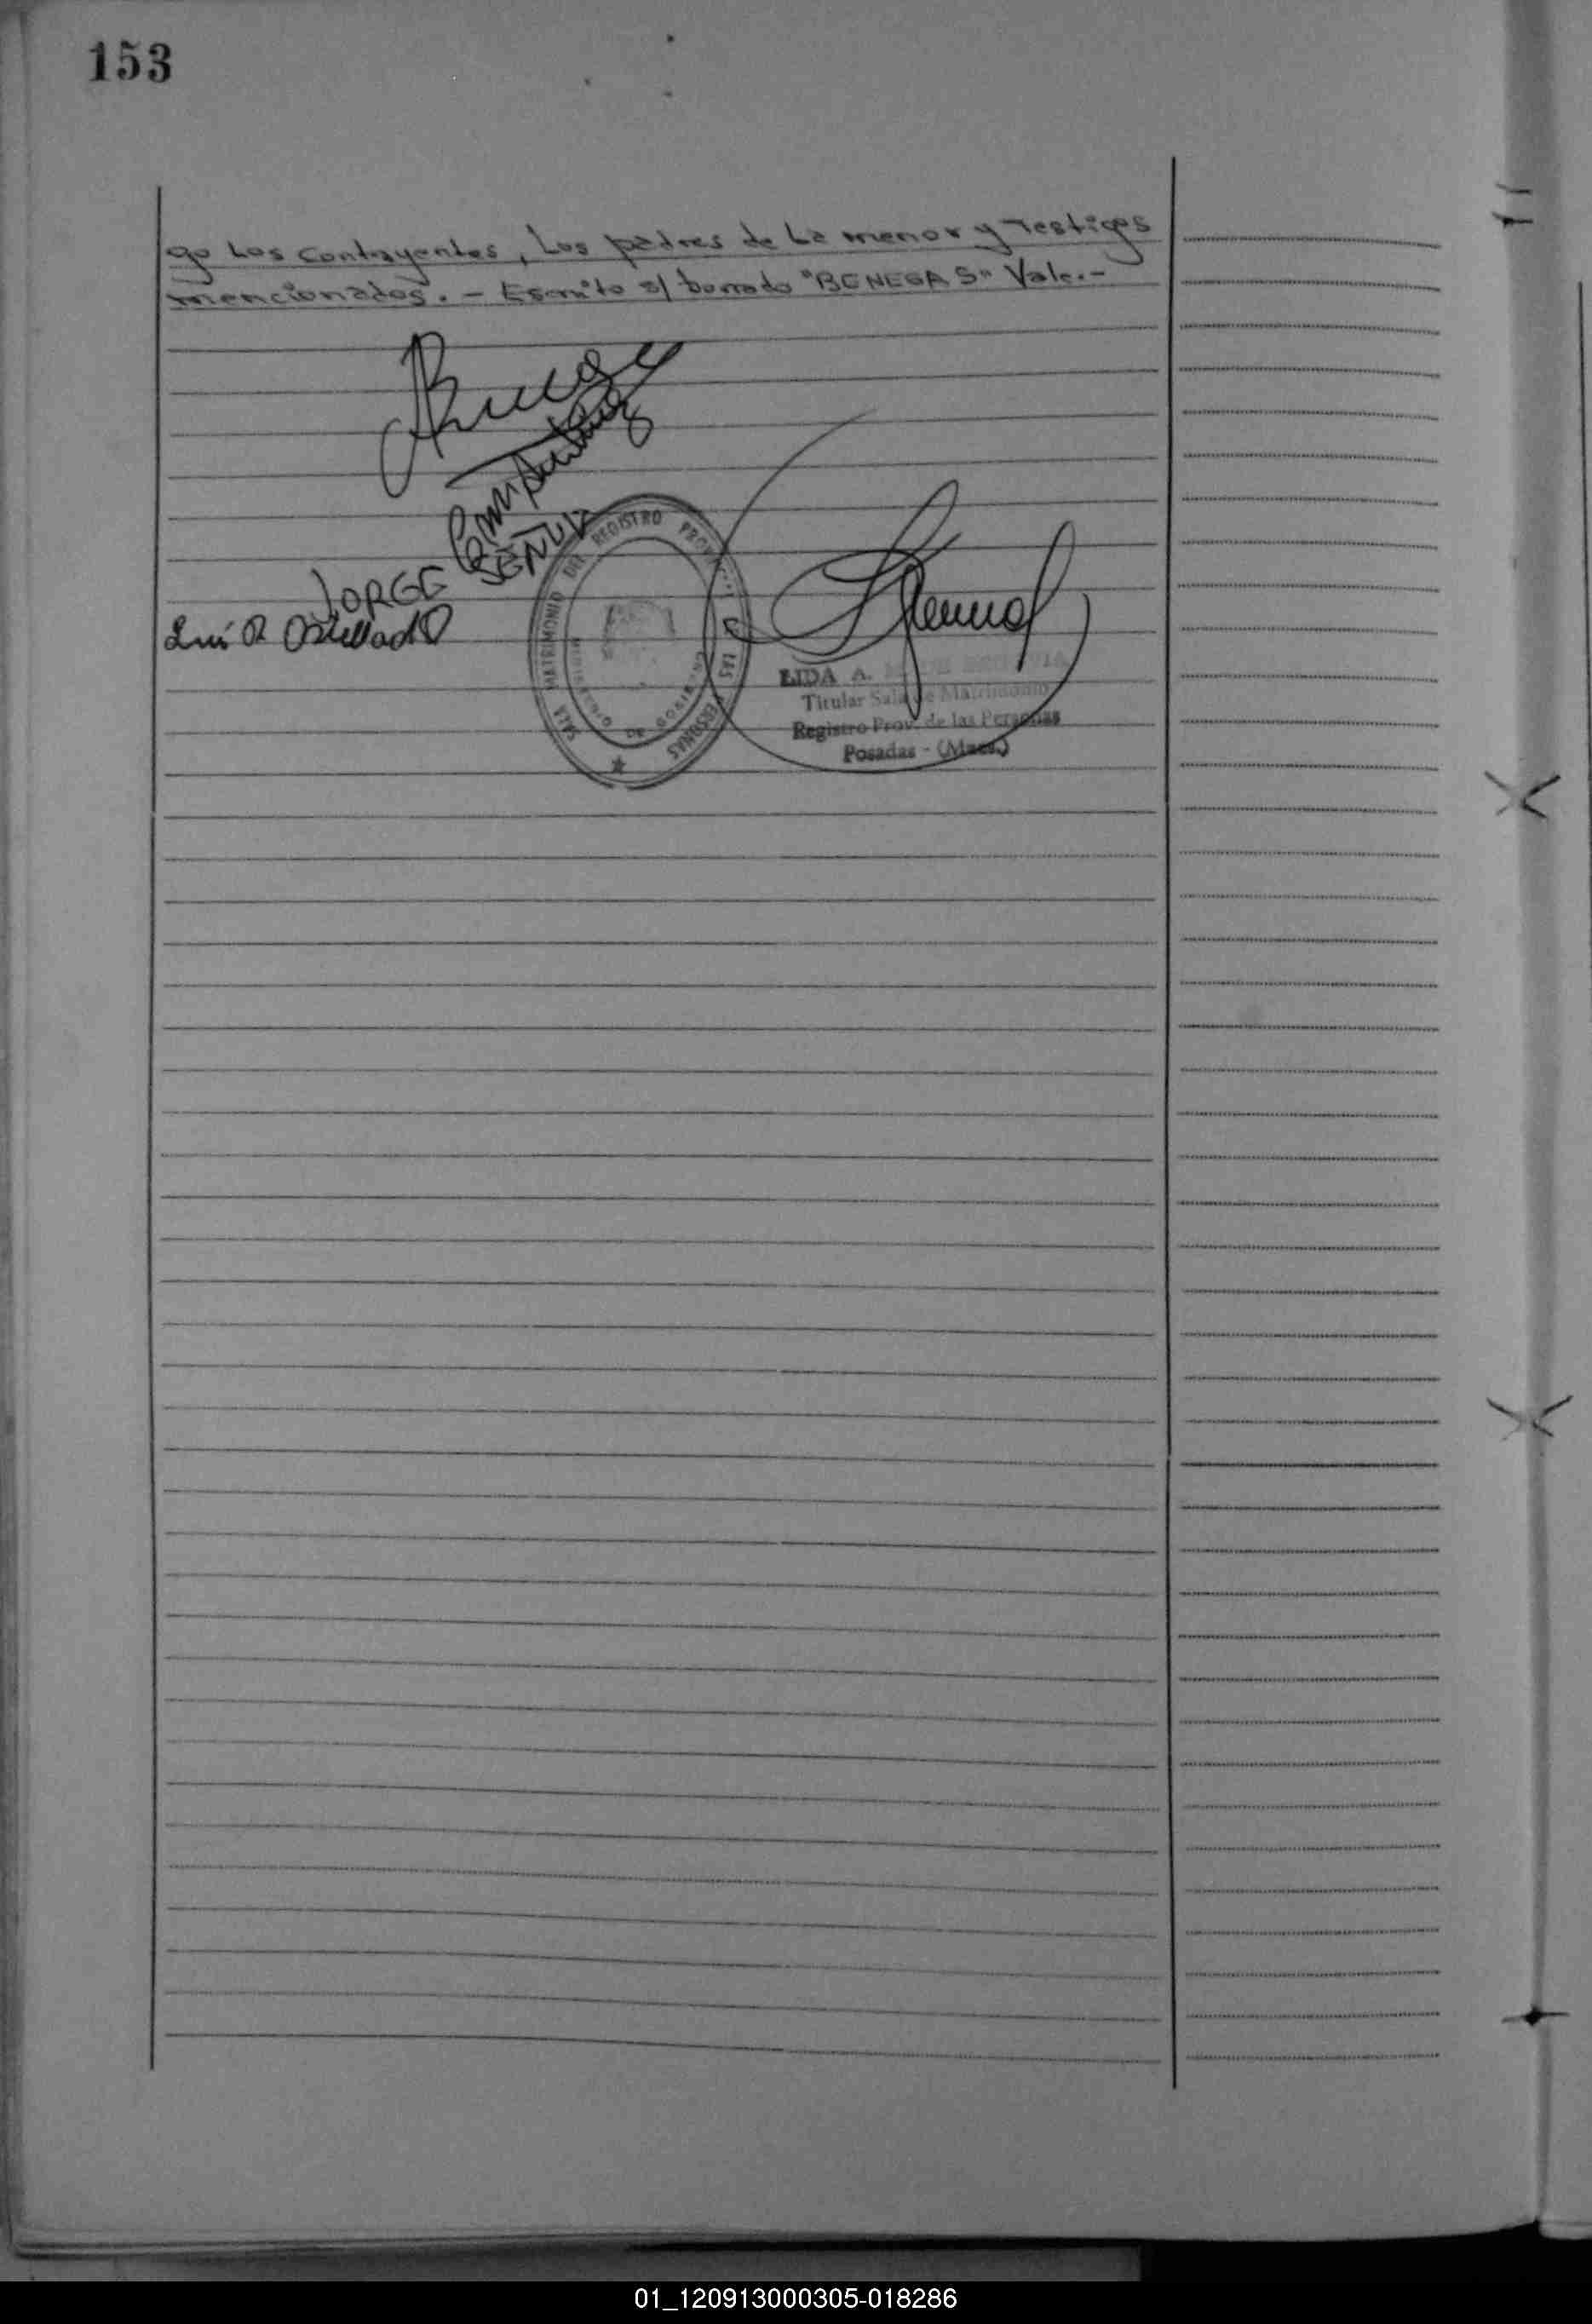 153
go Los contrayentes, Los padres de La menor y Testigos
mencionados. - Escrito s/ borrado "BENEGAS" Vale.-
JORGE
Luis R
SALA MATRIMONIO DEL REGISTRO PROV. DE LAS PERSONAS
MINISTERIO DE GOBIERNO
LIDA A.
Titular Sala de Matrimonio
Registro Prov. de las Personas
Posadas - (Mnes.)
01_120913000305-018286